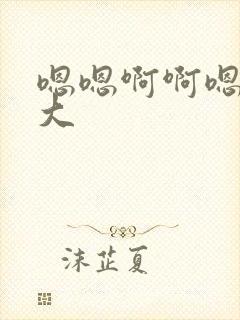 嗯嗯啊啊嗯
大
沫芷夏